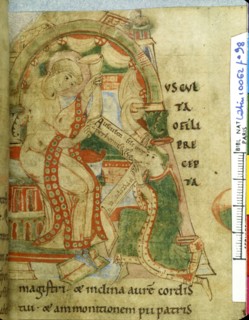 VSCVL
TA
OFILI
PRE
CEP
TA
magistri · & inclina aurē cordis
tui · & ammonitionem pii patris
BIBL. NAT.
PARIS
latin 10062 fo 98